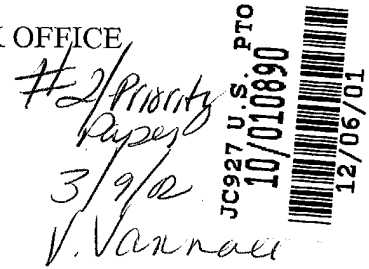 K OFFICE
#2/Priority
Paper
3/9/02
JC927 U.S. PTO
10/010890
12/06/01